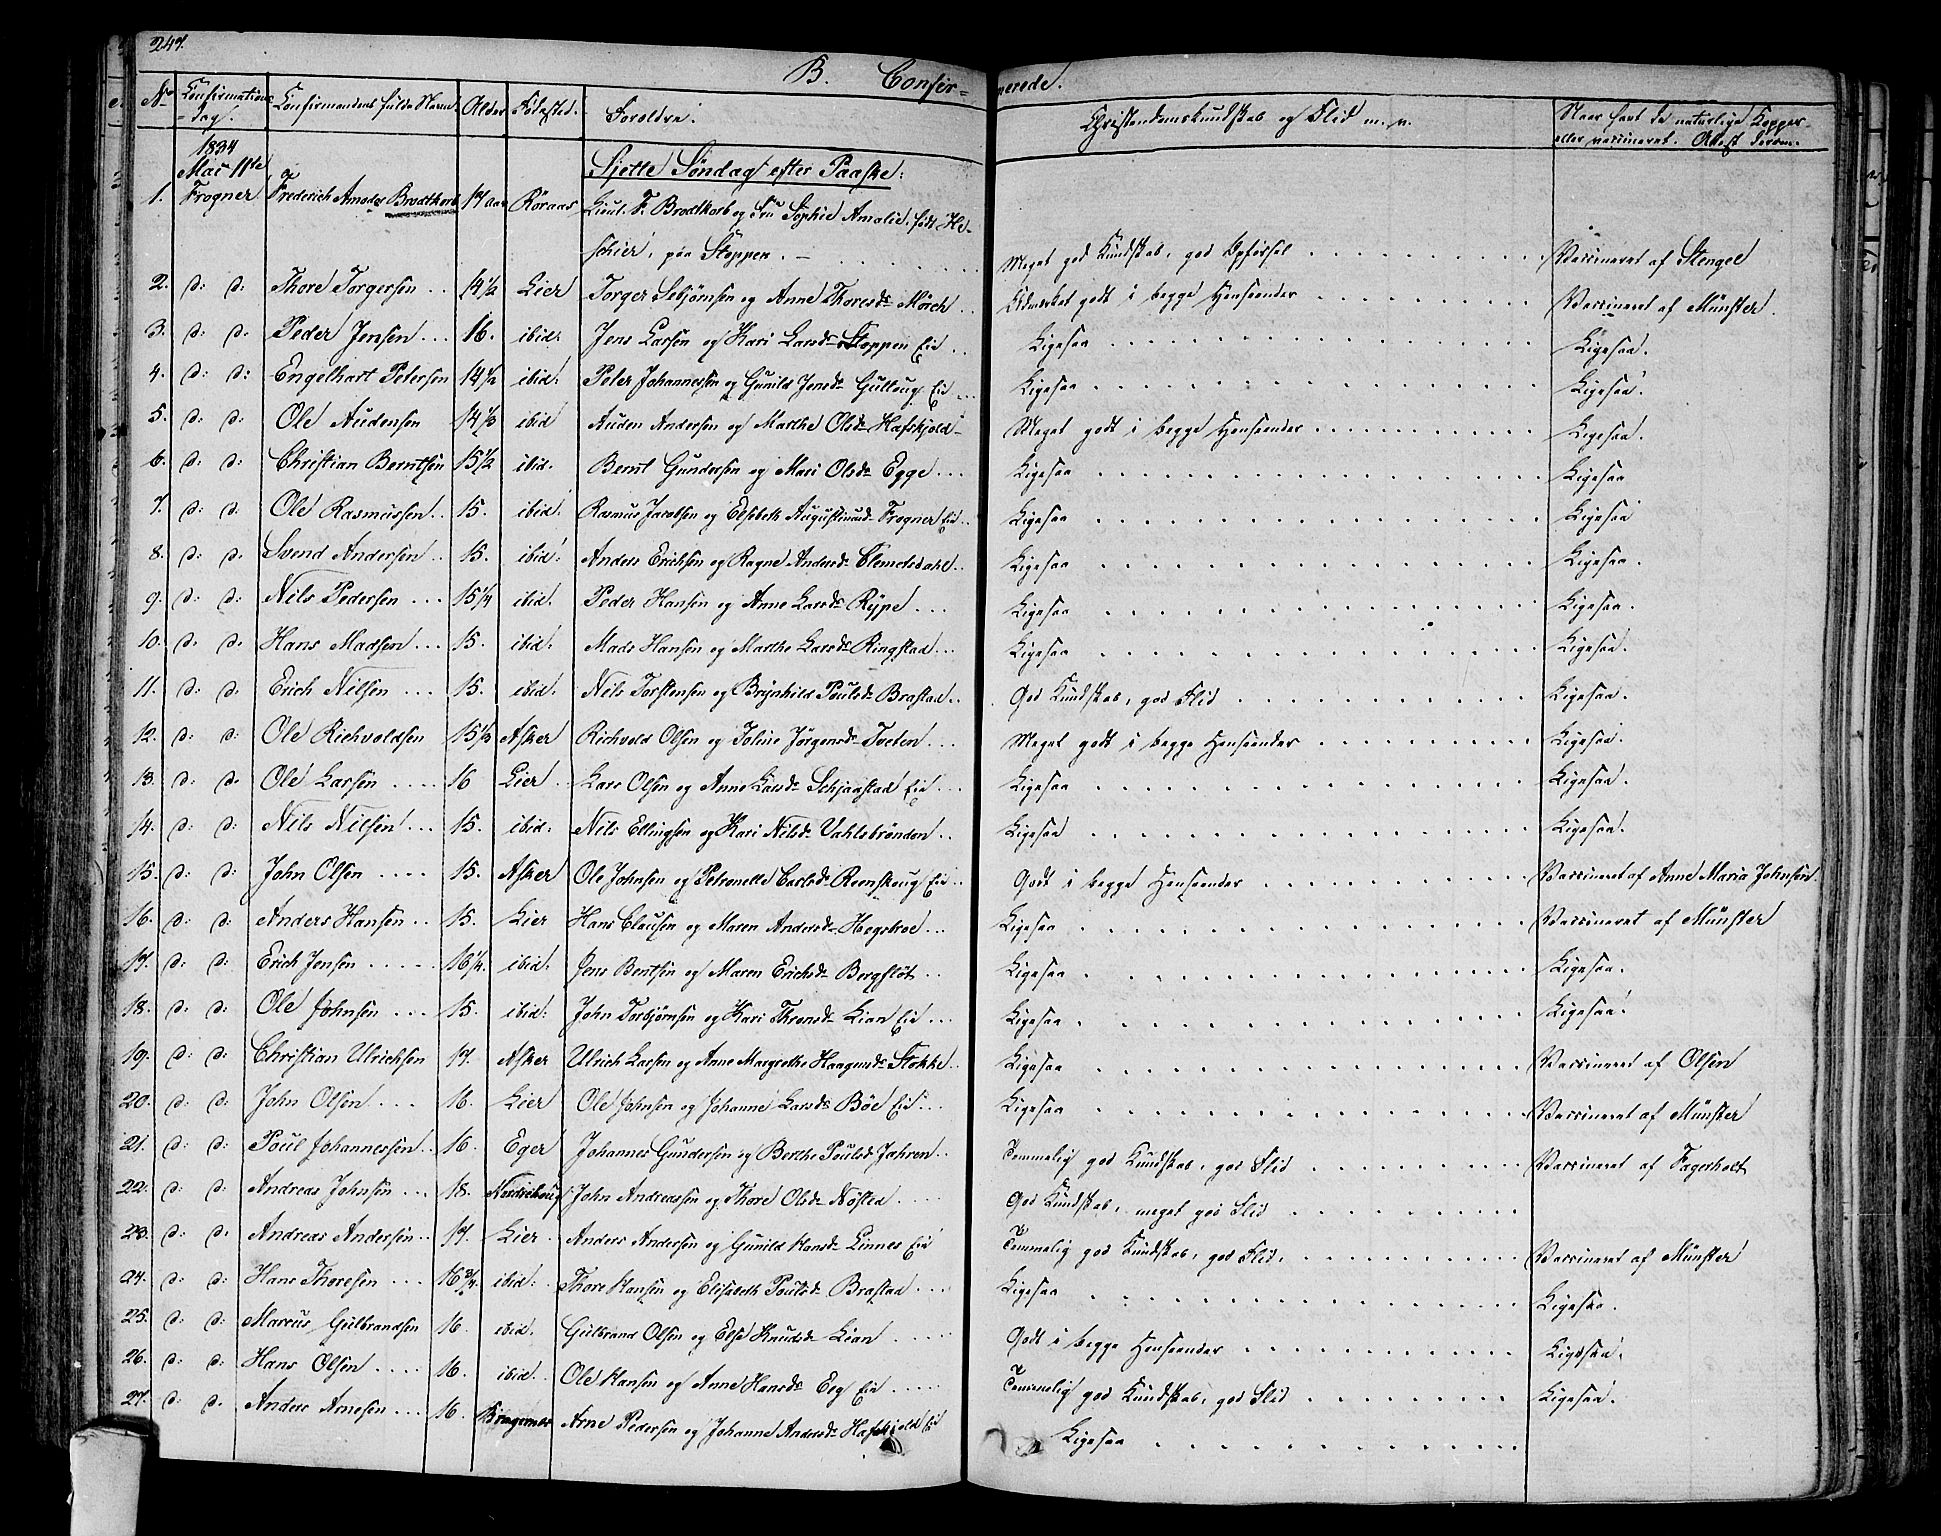 247.
B. Confirmerede.
No Confirmations-dag. Confirmandens fulde Navn Alder Födested. Forældre. Christendomskundskab og Flid m. v. Naar havt de naturlige Kopper eller vaccineret. Attest derom.
1834
Mai 11te Sjette Söndag efter Paaske:
1. Frogner Frederich Amadæ Brodtkorb 14 aar Röraas Lieut. F. Brodtkorb og Fru Sophie Amalie, född He-
schier, paa Stoppen. Meget god Kundskab, god Opförsel Vaccineret af Stengel
2. d: d: Thore Torgersen 14 1/2 Lier Torger Sebjörnsen og Anne Thoresd: Mörch Udmærket godt i begge Henseender Vaccineret af Münster.
3. d: d: Peder Jensen 16. ibid: Jens Larsen og Kari Larsd: Stoppen Eie Ligesaa Ligesaa.
4. d: d: Engelhart Petersen 14 1/2 ibid: Peter Johannessen og Gunild Jensd: Gulloug Eie Ligesaa Ligesaa.
5. d: d: Ole Audensen 14 1/2 ibid Auden Andersen og Marthe Olsd: Hafskjold Meget godt i begge Henseender Ligesaa.
6. d: d: Christian Berntsen 15 1/2 ibid. Bernt Gundersen og Mari Olsd: Egge Ligesaa Ligesaa
7. d: d: Ole Rasmussen 15. ibid. Rasmus Jacobsen og Elsebeth Augustinusd: Frogner Eie Ligesaa Ligesaa
8. d: d: Svend Andersen 15. ibid: Anders Erichsen og Ragne Andersd: Slemdsdahl Ligesaa Ligesaa.
9. d: d: Nils Pedersen 15 1/4 ibid. Peder Hansen og Anne Larsd: Rÿpe Ligesaa Ligesaa.
10. d: d: Hans Madsen 15. ibid: Mads Hansen og Marthe Larsd: Ringstad Ligesaa Ligesaa.
11. d: d: Erich Nilsen 15. ibid. Nils Torstensen og Brynhild Poulsd: Brastad God Kundskab, god Flid Ligesaa.
12. d: d: Ole Richvoldsen 15 1/2 Asker Richvold Olsen og Joline Jörgensd: Tveten Meget godt i begge Henseender Ligesaa.
13. d: d: Ole Larsen 16 Lier Lars Olsen og Anne Larsd: Schjaastad Eie Ligesaa Ligesaa.
14. d: d: Nils Nilsen 15. ibid: Nils Ellingsen og Kari Nilsd: Vahlsbrönden Ligesaa Ligesaa.
15. d: d: John Olsen 15. Asker Ole Johnsen og Petronelle Carlsd: Reenskoug Eie Godt i begge Henseender Vaccineret af Anne Maria Johnsen.
16. d: d: Anders Hansen 15. Lier Hans Clausen og Maren Andersd: Hegsbroe Ligesaa Vaccineret af Münster
17. d: d: Erich Jensen 16 1/4. ibid. Jens Bentsen og Maren Erichsd: Bergflöt Ligesaa Ligesaa.
18. d: d: Ole Johnsen 15. ibid: John Torbjörnsen og Kari Thronsd: Lian Eie Ligesaa Ligesaa.
19. d: d: Christian Ulrichsen 17. Asker Ulrich Larsen og Anne Margrethe Haagensd: Stokke Ligesaa Vaccineret af Olsen
20. d: d: John Olsen 16. Lier Ole Johnsen og Johanne Larsd: Böe Eie Ligesaa Vaccineret af Münster
21. d: d: Poul Johannessen 16. Eger Johannes Gundersen og Berthe Poulsd: Jahren Temmelig god Kundskab, god Flid Vaccineret af Fagerholt
22. d: d: Andreas Johnsen 18. John Andreassen og Thore Olsd: Nösted God Kundskab, meget god Flid
23. d: d: Andreas Andersen 17. Lier Anders Andersen og Gunild Hansd: Linnes Eie Temmelig god Kundskab, god Flid. Vaccineret af Münster
24. d: d: Hans Thoresen 16 3/4. ibid: Thore Hansen og Elisabeth Poulsd: Brastad Ligesaa Ligesaa.
25. d: d: Marcus Gulbrandsen 16. ibid. Gulbrand Olsen og Else Knudsd: Lian Godt i begge Henseender Ligesaa.
26. d: d: Hans Olsen 16. ibid: Ole Hansen og Anne Hansd: Eeg Eie Temmelig god Kundskab, god Flid Ligesaa.
27. d: d. Anders Arnesen 16. Bragernes Arne Pedersen og Johanne Andersd: Hafskjold Eie Ligesaa